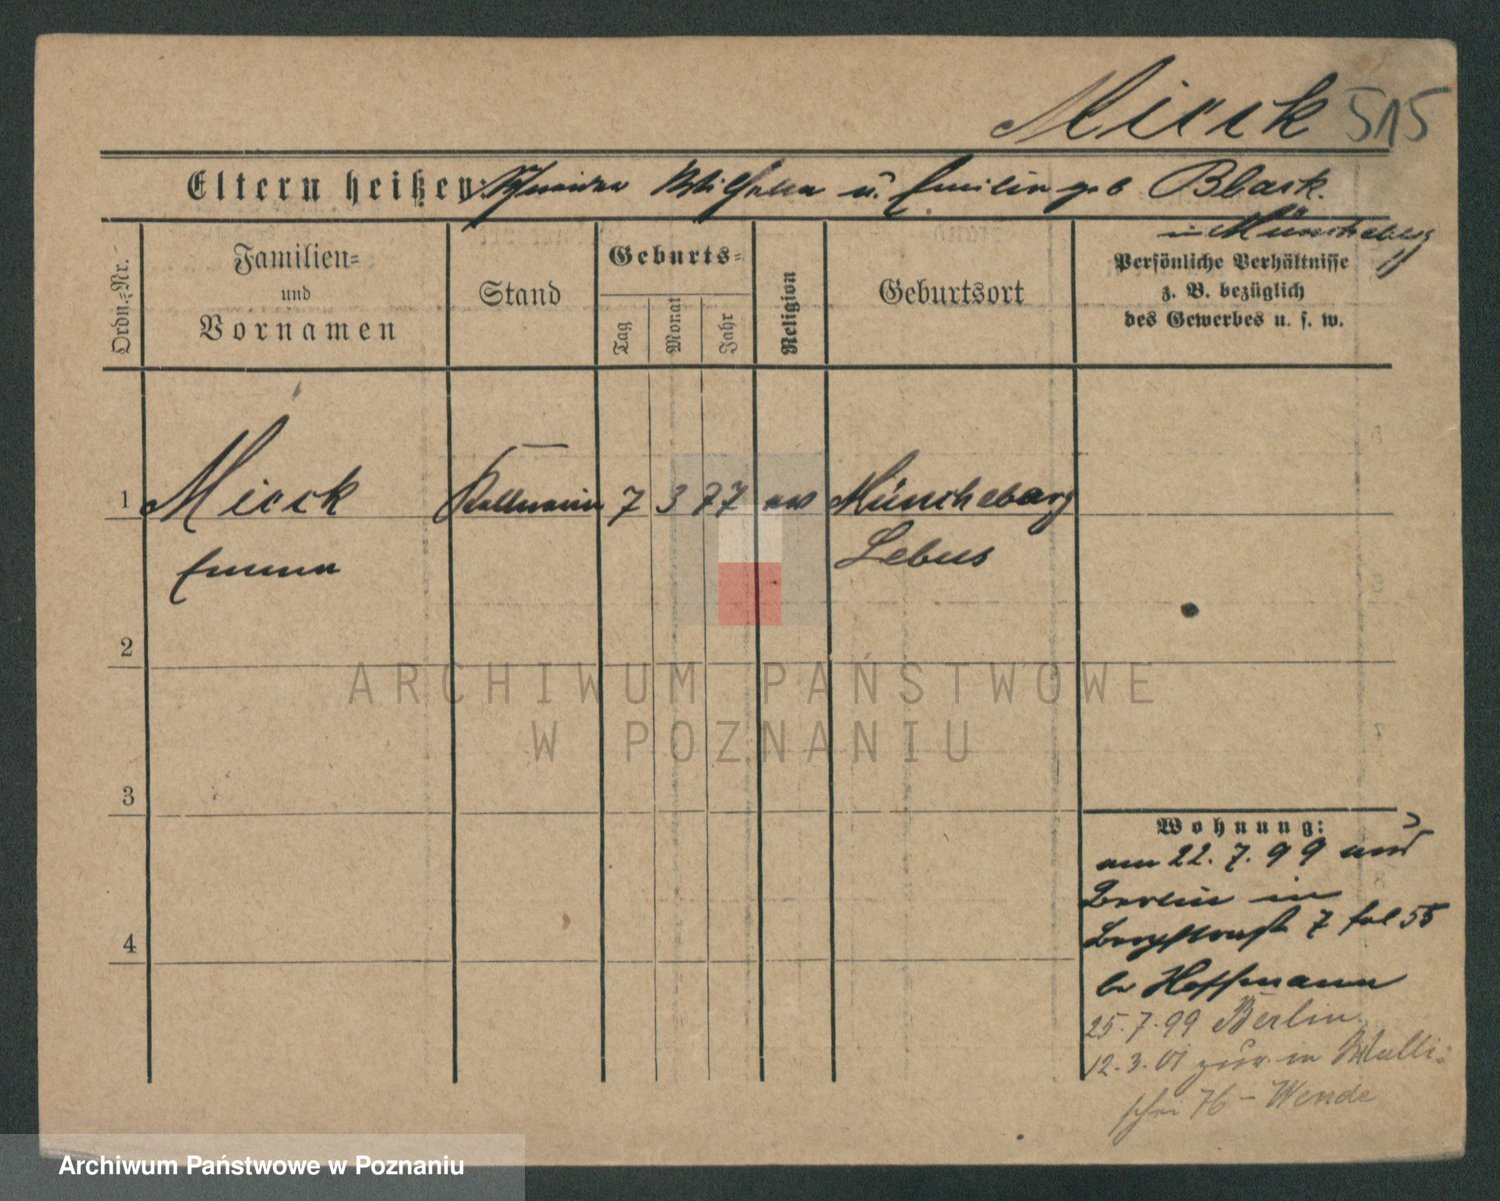 Mieck 515
Eltern heißen: Schneider Wilhelm u. Emilie geb Blaak.
in Müncheberg
Ordn.=Nr.
Familien=
und
Vornamen
Stand
Geburts=
Tag
Monat
Jahr
Religion
Geburtsort
Persönliche Verhältnisse
z. B. bezüglich
des Gewerbes u. s. w.
1 Mieck Kellnerin 7 3 77 ev Müncheberg
Emma Lebus
2
3
4
Wohnung:
am 22. 7. 99 aus
Berlin in
7 55
b Hoffmann
25.7.99 Berlin
12.3.01 zur. in Walli=
schei 76 – Wende
ARCHIWUM PAŃSTWOWE
W POZNANIU
Archiwum Państwowe w Poznaniu